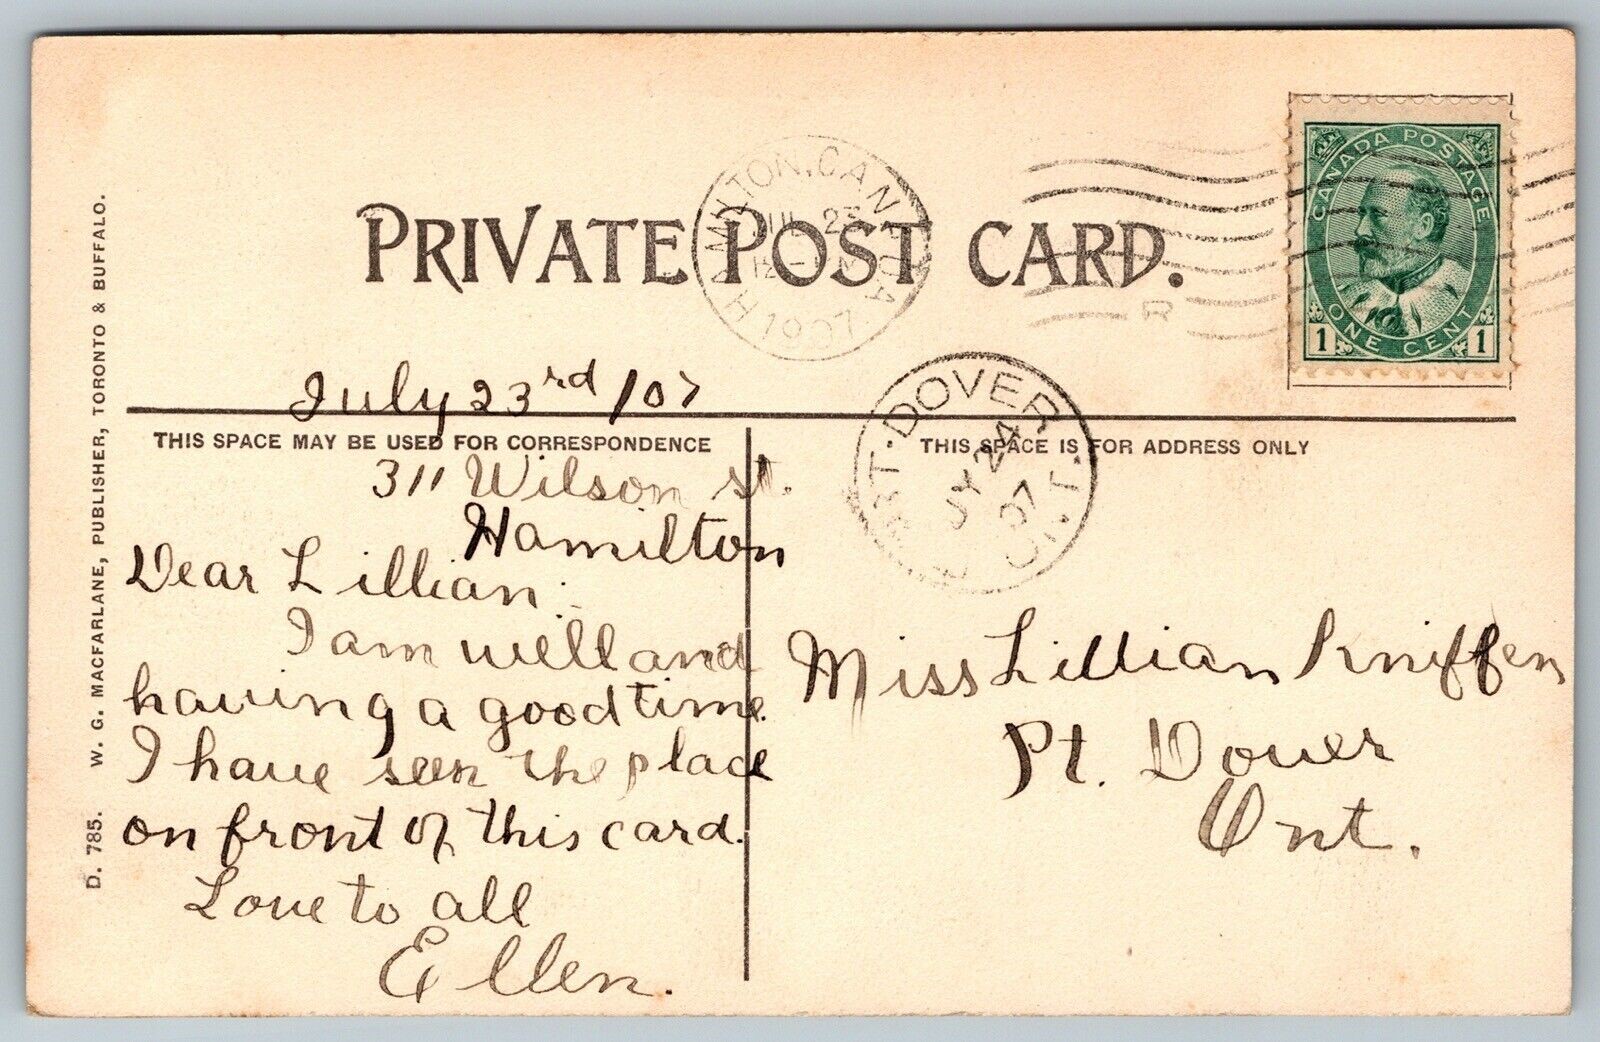 PRIVATE POST CARD.
HAMILTON, CANADA
JUL 23
1907
CANADA POSTAGE
1 ONE CENT 1
July 23rd /07
PORT-DOVER
JY 24
07
ONT.
THIS SPACE MAY BE USED FOR CORRESPONDENCE
THIS SPACE IS FOR ADDRESS ONLY
311 Wilson st.
Hamilton
Dear Lillian:
I am well and
having a good time.
I have seen the place
on front of this card.
Love to all
Ellen.
Miss Lillian Kniffen
Pt. Dover
Ont.
D. 785. W. G. MACFARLANE, PUBLISHER, TORONTO & BUFFALO.